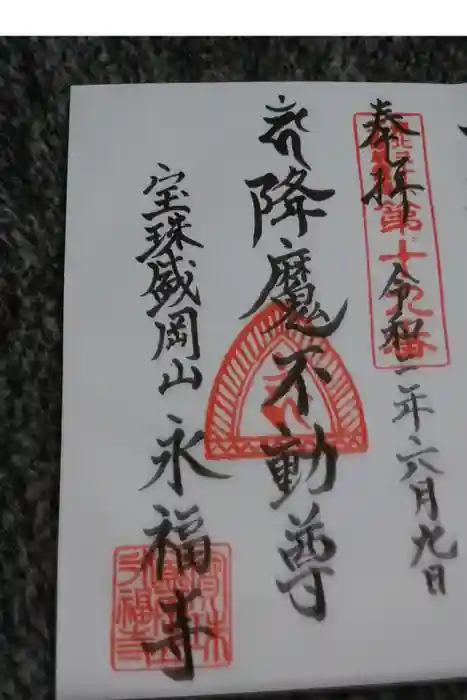 奉拝
第十九番
令和二年六月九日
降魔不動尊
宝珠盛岡山
永福寺